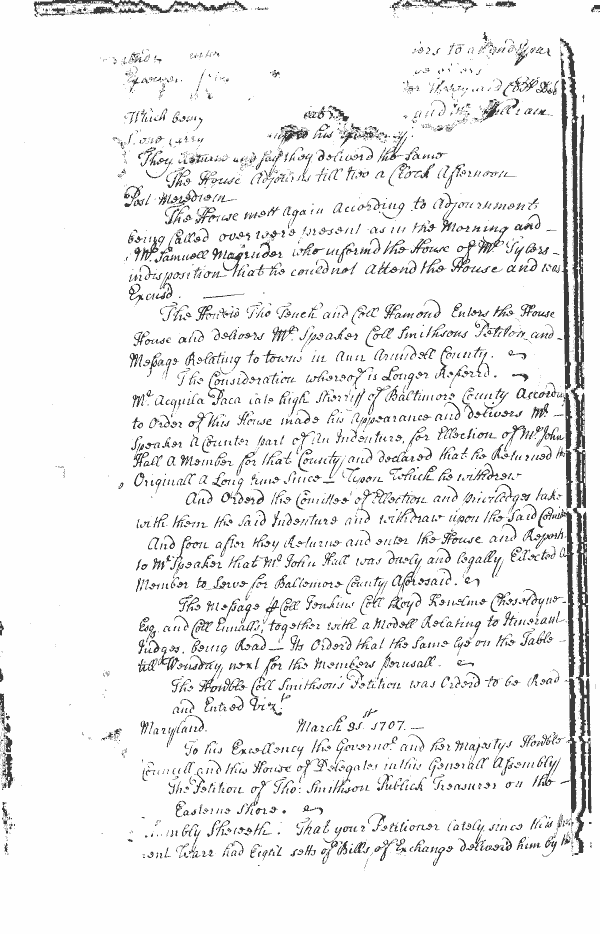 iers to attend your
Which being
and
Long carry his
They Returne and say they deliverd the same
The House Adjourns till two a Clock Afternoon
Post Merediem
The House mett Again According to Adjournment
being Called over were present as in the Morning and
Mr. Samuell Magruder who informd the House of Mr. Tylers
indisposition that he could not attend the House and was
Excusd.
The Honble Tho Tench and Coll Hamond Enters the House
House and delivers Mr. Speaker Coll Smithsons Petiton and
Message Relating to towns in Ann Arundell County.
The Consideration whereof is Longer Referrd.
Mr. Acquila Paca late high Sherriff of Baltimore County Accordin
to Order of this House made his Appearance and delivers Mr.
Speaker A Counter part of An Indenture, for Ellection of Mr. John
Hall A Member for that County, and declared that he Returned the
Originall A Long time Since — Upon Which he withdrew
And Orderd the Comittee of Ellection and priviledges take
with them the said Indenture and withdraw upon the said
And soon after they Returne and enter the House and Report
to Mr Speaker that Mr. John Hall was duely and legally Ellected A
Member to Serve for Baltemore County Aforesaid.
The Message ꝑ Coll Jenkins Coll Lloyd Kenelme Cheseldyne
Esq. and Coll Ennalls, together with a Modell Relating to Itinerant
Judges, being Read — Its Orderd that the same Lye on the Table
till Wensday next for the Members perusall.
The Honble Coll Smithsons Petition was Orderd to be Read
and Entred Vizt.
Maryland. March 31st 1707. —
To his Excellency the Governor. and her Majestys Honble
Councill and this House of Delegates in this Generall Assembly
The Petition of Tho: Smithson Publick Treasurer on the
Easterne Shore.
Humbly Sheweth: That your Petitioner lately since this
Warr had Eight setts of Bills, of Exchange deliverd him by the